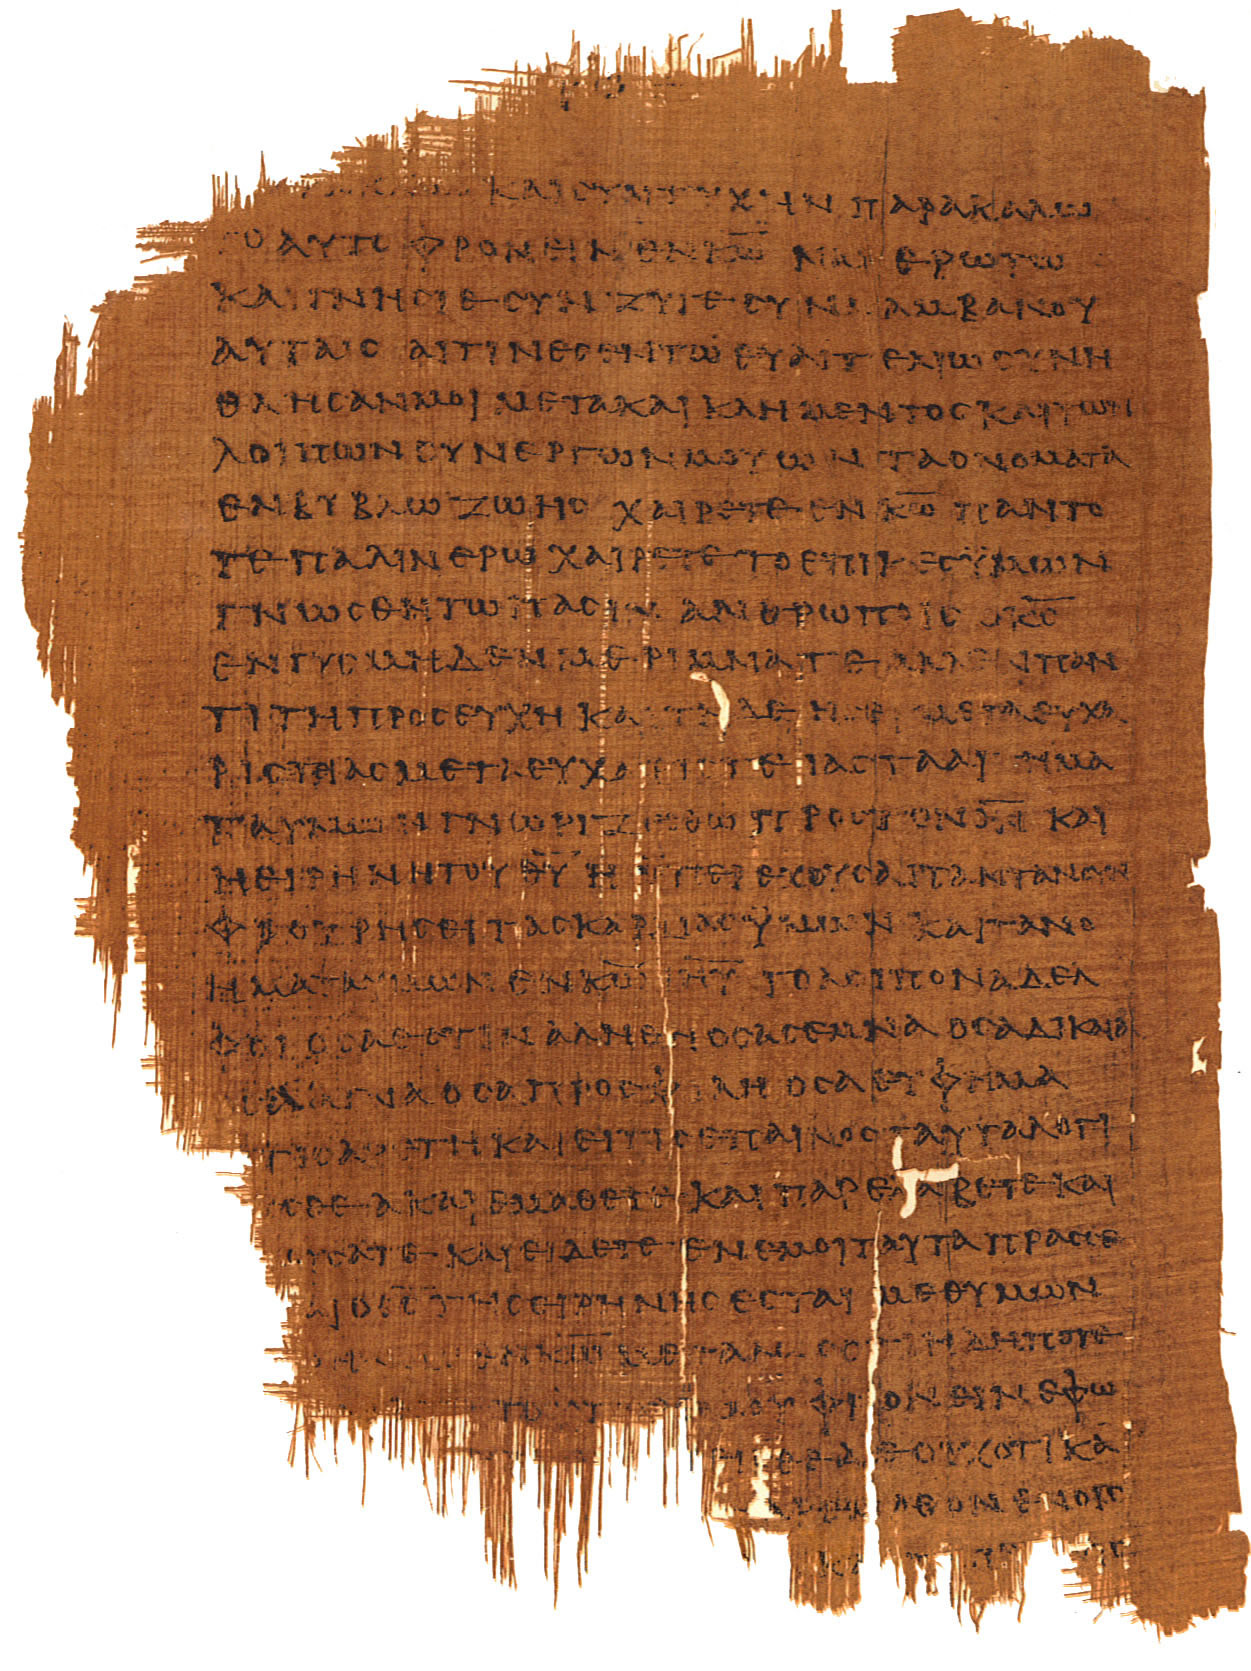 ΚΑΙ ϹΥΝΤΥΧΗΝ ΠΑΡΑΚΑΛΩ
ΤΟ ΑΥΤΟ ΦΡΟΝΕΙΝ ΕΝ Κ̅Ω̅ ΝΑΙ ΕΡΩΤΩ
ΚΑΙ ΓΝΗϹΙΕ ϹΥΝΖΥΓΕ ϹΥΝΛΑΜΒΑΝΟΥ
ΑΥΤΑΙϹ ΑΙΤΙΝΕϹ ΕΝ ΤΩ ΕΥΑΓΓΕΛΙΩ ϹΥΝΗ
ΘΛΗϹΑΝ ΜΟΙ ΜΕΤΑ ΚΑΙ ΚΛΗΜΕΝΤΟϹ ΚΑΙ ΤΩΝ
ΛΟΙΠΩΝ ϹΥΝΕΡΓΩΝ ΜΟΥ ΩΝ ΤΑ ΟΝΟΜΑΤΑ
ΕΝ ΒΥΒΛΩ ΖΩΗϹ ΧΑΙΡΕΤΕ ΕΝ Κ̅Ω̅ ΠΑΝΤΟ
ΤΕ ΠΑΛΙΝ ΕΡΩ ΧΑΙΡΕΤΕ ΤΟ ΕΠΙΙΚΕϹ ΫΜΩΝ
ΓΝΩϹΘΗΤΩ ΠΑϹΙΝ ΑΝΘΡΩΠΟΙϹ Ο Κ̅Ϲ̅
ΕΝΓΥϹ ΜΗΔΕΝ ΜΕΡΙΜΝΑΤΕ ΑΛΛ ΕΝ ΠΑΝ
ΤΙ ΤΗ ΠΡΟϹΕΥΧΗ ΚΑΙ ΤΗ ΔΕΗϹΕΙ ΜΕΤΑ ΕΥΧΑ
ΡΙϹΤΕΙΑϹ ΜΕΤΑ ΕΥΧΑΡΙϹΤΕΙΑϹ ΤΑ ΑΙΤΗΜΑ
ΤΑ ΥΜΩΝ ΓΝΩΡΙΖΕϹΘΩ ΠΡΟϹ ΤΟΝ Θ̅Ν̅ ΚΑΙ
Η ΕΙΡΗΝΗ ΤΟΥ Θ̅Υ̅ Η ΫΠΕΡΕΧΟΥϹΑ ΠΑΝΤΑ ΝΟΥΝ
ΦΡΟΥΡΗϹΕΙ ΤΑϹ ΚΑΡΔΙΑϹ ΫΜΩΝ ΚΑΙ ΤΑ ΝΟ
ΗΜΑΤΑ ΥΜΩΝ ΕΝ Κ̅Ω̅ Ι̅Η̅Υ̅ ΤΟ ΛΟΙΠΟΝ ΑΔΕΛ
ΦΟΙ ΟϹΑ ΕϹΤΙΝ ΑΛΗΘΗ ΟϹΑ ϹΕΜΝΑ ΟϹΑ ΔΙΚΑΙΑ
ΟϹΑ ΑΓΝΑ ΟϹΑ ΠΡΟϹΦΙΛΗ ΟϹΑ ΕΥΦΗΜΑ
ΤΙϹ ΑΡΕΤΗ ΚΑΙ ΕΙ ΤΙϹ ΕΠΑΙΝΟϹ ΤΑΥΤΑ ΛΟΓΙ
ϹΘΕ Α ΚΑΙ ΕΜΑΘΕΤΕ ΚΑΙ ΠΑΡΕΛΑΒΕΤΕ ΚΑΙ
ΟΥϹΑΤΕ ΚΑΙ ΕΙΔΕΤΕ ΕΝ ΕΜΟΙ ΤΑΥΤΑ ΠΡΑϹϹΕ
ΑΙ Ο Θ̅Ϲ̅ ΤΗϹ ΕΙΡΗΝΗϹ ΕϹΤΑΙ ΜΕΘ ΥΜΩΝ
ΕΝ Κ̅Ω̅ ΜΕΓΑΛΩϹ ΟΤΙ ΗΔΗ ΠΟΤΕ
ΦΡΟΝΕΙΝ ΕΦ Ω